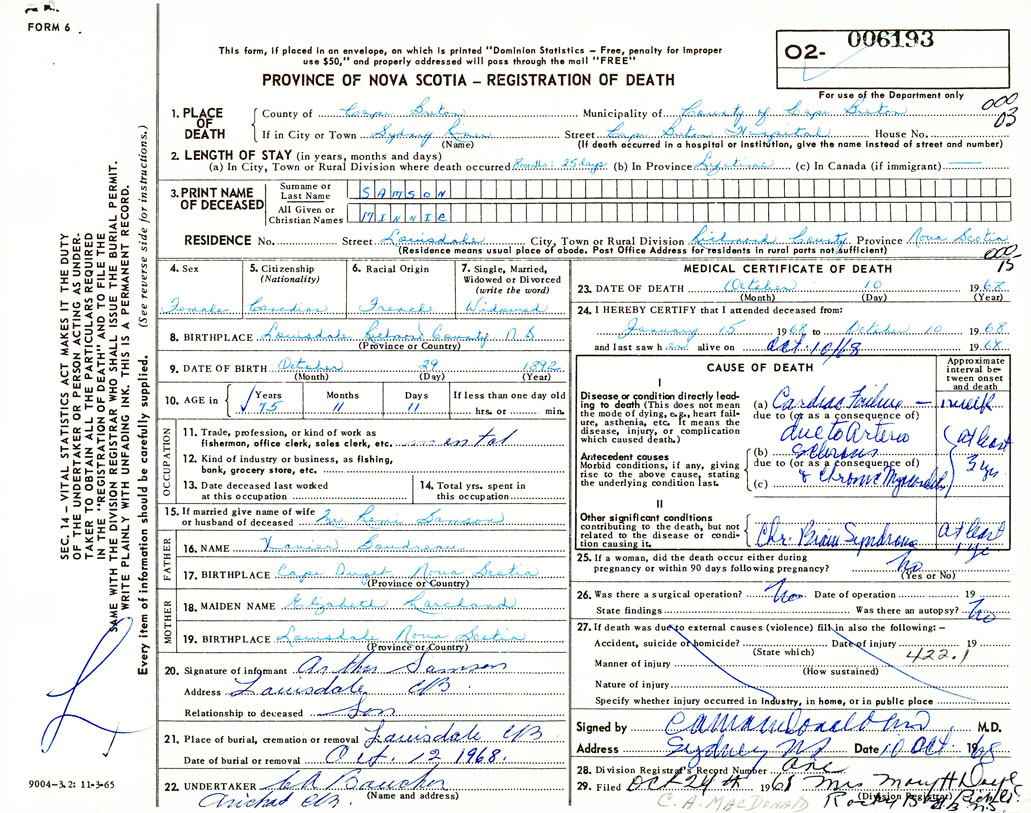 FORM 6
This form, if placed in an envelope, on which is printed "Dominion Statistics – Free, penalty for improper
use $50," and properly addressed will pass through the mail "FREE"
PROVINCE OF NOVA SCOTIA – REGISTRATION OF DEATH
02- 006193
For use of the Department only
000
03
1. PLACE OF DEATH
County of Cape Breton Municipality of County of Cape Breton
If in City or Town Sydney River Street Cape Breton Hospital House No.
(Name) (If death occurred in a hospital or institution, give the name instead of street and number)
2. LENGTH OF STAY (in years, months and days)
(a) In City, Town or Rural Division where death occurred 8 months: 25 days (b) In Province Lifetime (c) In Canada (if immigrant) —
3. PRINT NAME OF DECEASED
Surname or Last Name SAMSON
All Given or Christian Names MINNIE
RESIDENCE No. Street Louisdale City, Town or Rural Division Richmond County Province Nova Scotia
(Residence means usual place of abode. Post Office Address for residents in rural parts not sufficient)
000
15
4. Sex Female
5. Citizenship (Nationality) Canadian
6. Racial Origin French
7. Single, Married, Widowed or Divorced (write the word) Widowed
8. BIRTHPLACE Louisdale Richmond County N S
(Province or Country)
9. DATE OF BIRTH October 29 1892
(Month) (Day) (Year)
10. AGE in Years 75 Months 11 Days 11 If less than one day old
hrs. or min.
OCCUPATION
11. Trade, profession, or kind of work as
fisherman, office clerk, sales clerk, etc.
12. Kind of industry or business, as fishing,
bank, grocery store, etc.
13. Date deceased last worked
at this occupation
14. Total yrs. spent in
this occupation
15. If married give name of wife
or husband of deceased Mr. Remi Samson
FATHER
16. NAME Xavier Boudreau
17. BIRTHPLACE Cape Nova Scotia
(Province or Country)
MOTHER
18. MAIDEN NAME Elizabeth Marchand
19. BIRTHPLACE Louisdale Nova Scotia
(Province or Country)
20. Signature of informant Arthur Samson
Address Louisdale CB
Relationship to deceased Son
21. Place of burial, cremation or removal Louisdale CB
Date of burial or removal Oct. 12 1968
22. UNDERTAKER
(Name and address)
Arichat CB.
MEDICAL CERTIFICATE OF DEATH
23. DATE OF DEATH October 10 1968
(Month) (Day) (Year)
24. I HEREBY CERTIFY that I attended deceased from:
January 15 1968 to October 10 1968
and last saw her alive on Oct 10/68 1968
CAUSE OF DEATH
Approximate interval between onset and death
I
Disease or condition directly leading to death (This does not mean the mode of dying, e.g., heart failure, asthenia, etc. It means the disease, injury, or complication which caused death.)
(a) Cardiac Failure – 1 week
due to (or as a consequence of)
due to Arterio
Antecedent causes
Morbid conditions, if any, giving rise to the above cause, stating the underlying condition last.
(b) Sclerosis
due to (or as a consequence of)
(c) & Chronic Myocarditis
at least
3 yrs
II
Other significant conditions contributing to the death, but not related to the disease or condition causing it.
Chr. Brain Syndrome
At least
25. If a woman, did the death occur either during
pregnancy or within 90 days following pregnancy? No
(Yes or No)
26. Was there a surgical operation? No Date of operation 19
State findings Was there an autopsy? No
27. If death was due to external causes (violence) fill in also the following: –
Accident, suicide or homicide? Date of injury 19
(State which) 422.1
Manner of injury
(How sustained)
Nature of injury
Specify whether injury occurred in Industry, in home, or in public place
Signed by M.D.
Address Sydney NS Date 10 Oct 1968
28. Division Registrar's Record Number
29. Filed Oct 24th 1968
(Division Registrar)
C. A. MACDONALD
SEC. 14 – VITAL STATISTICS ACT MAKES IT THE DUTY
OF THE UNDERTAKER OR PERSON ACTING AS UNDER-
TAKER TO OBTAIN ALL THE PARTICULARS REQUIRED
IN THE "REGISTRATION OF DEATH" AND TO FILE THE
SAME WITH THE DIVISION REGISTRAR WHO SHALL ISSUE THE BURIAL PERMIT.
WRITE PLAINLY WITH UNFADING INK. THIS IS A PERMANENT RECORD.
Every item of information should be carefully supplied. (See reverse side for instructions.)
9004–3.2: 11-3-65